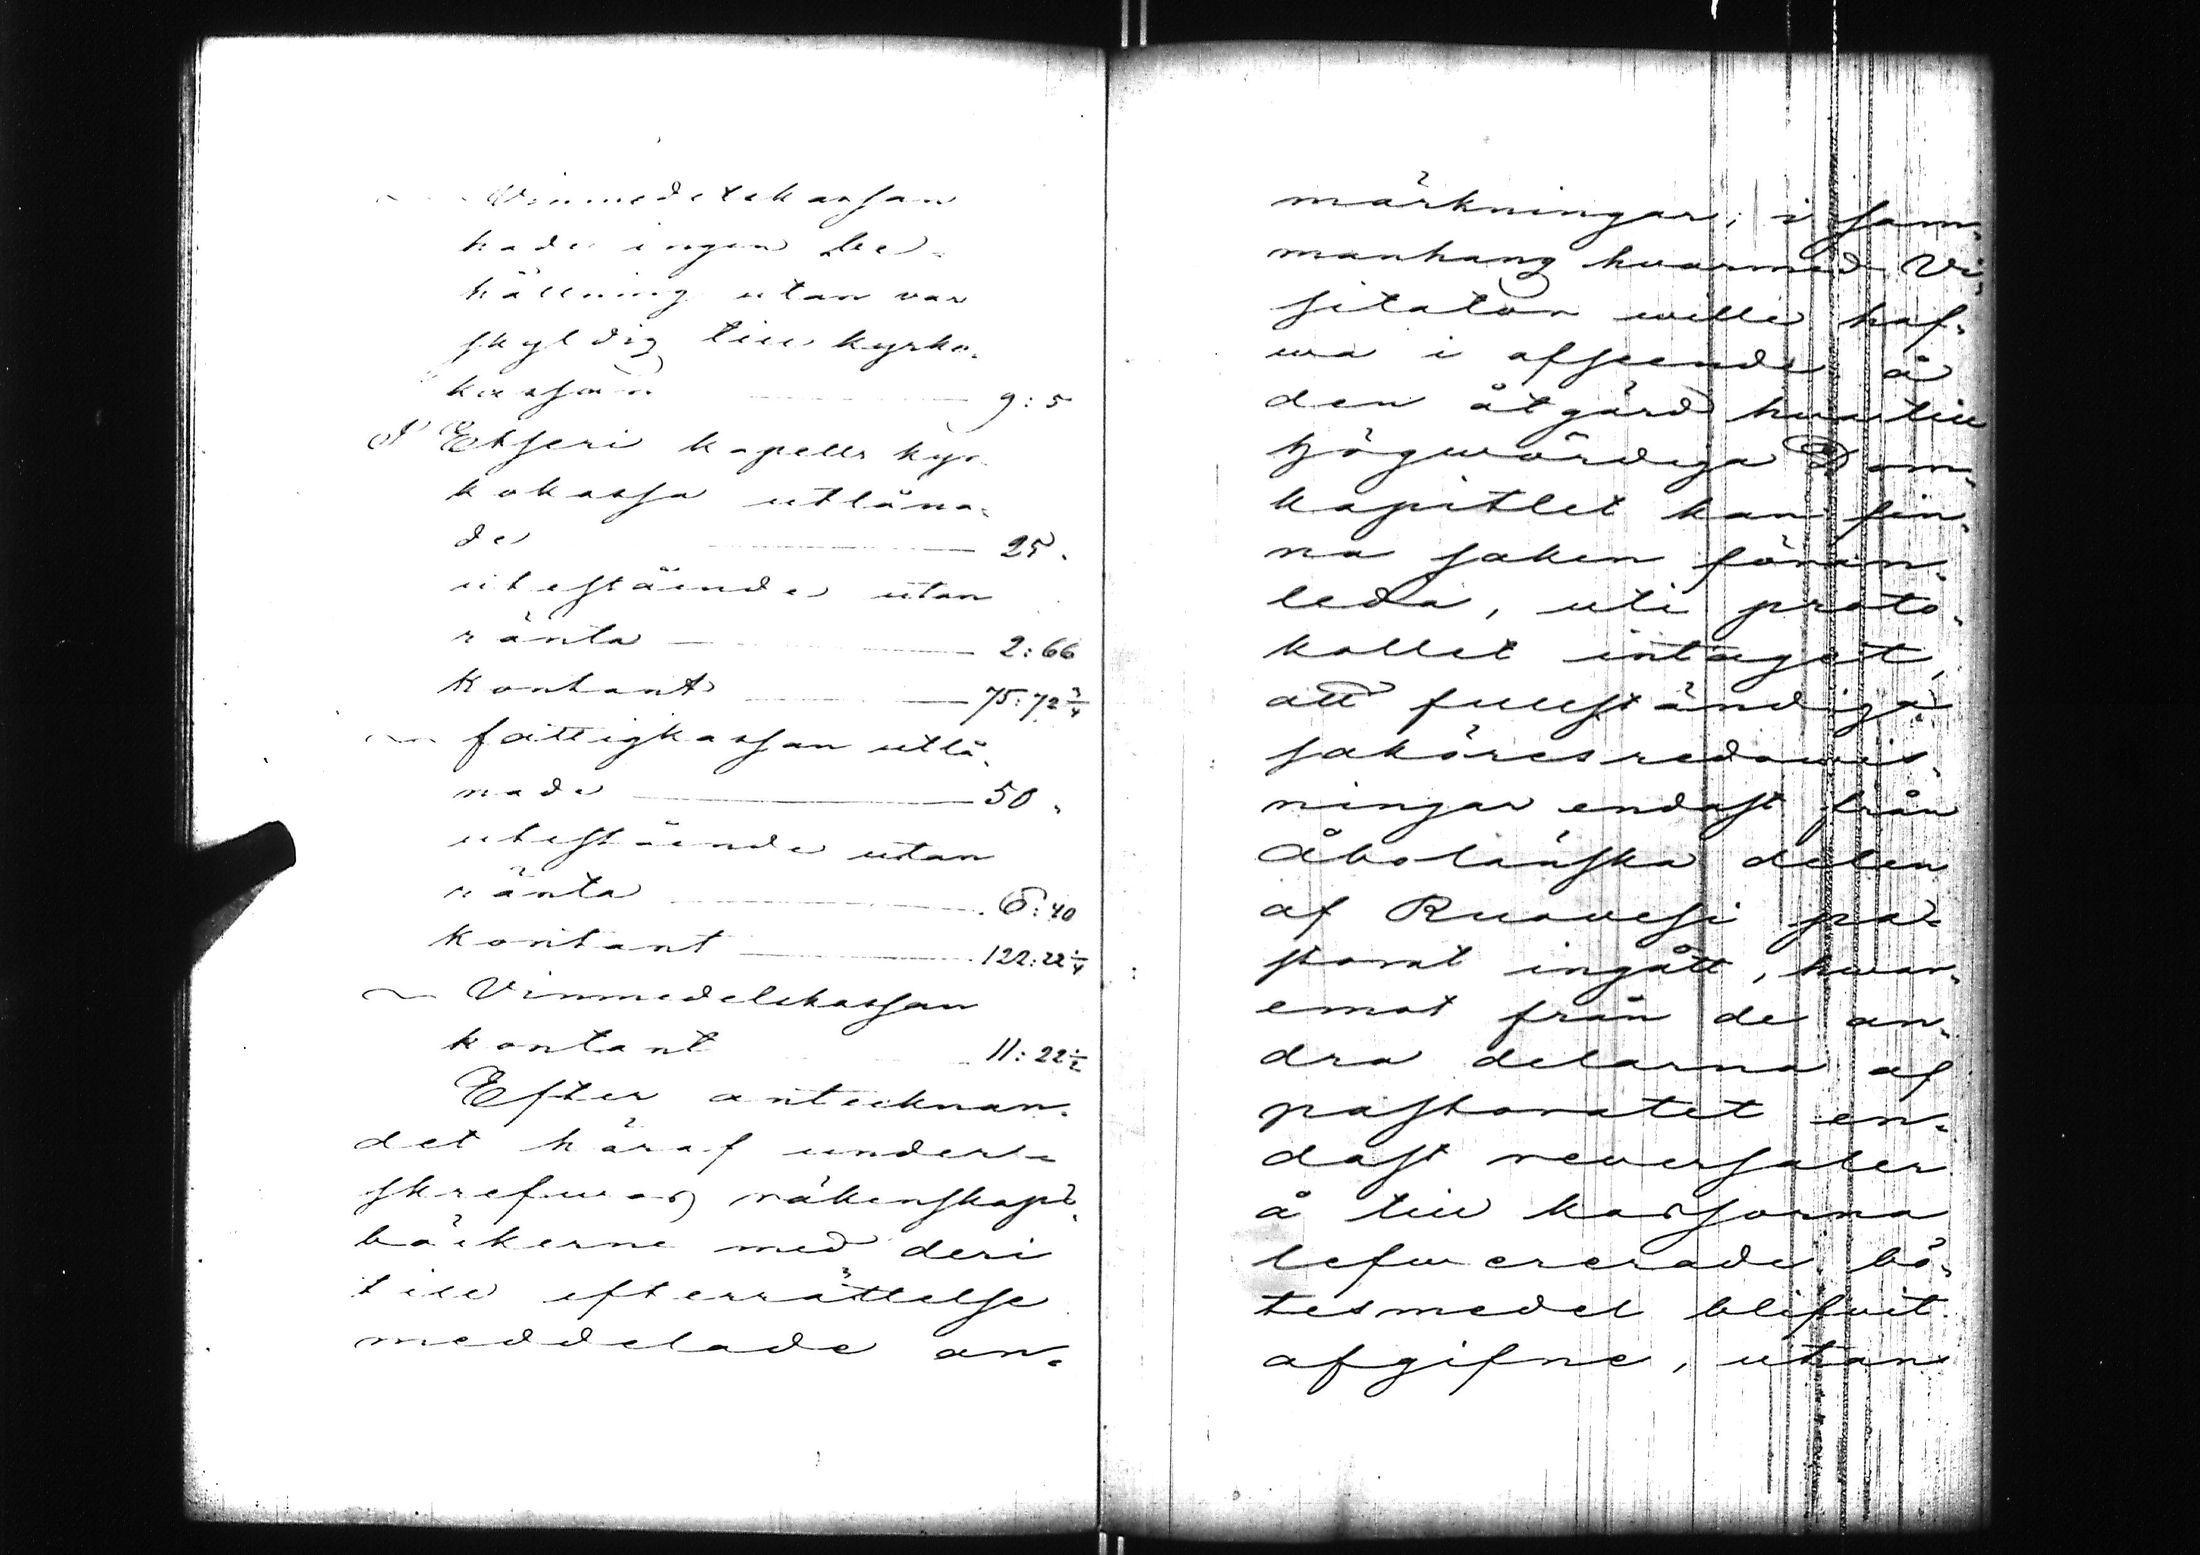 ~ Vinmedelskassan
hade ingen be-
hållning utan var
skyldig till kyrko-
kassan 9: 5
I Etseri kapells kyr-
kokassa utlåna-
de 25.
utestående utan
ränta 2: 66
kontant 75: 72 3/4
~ fattigkassan utlå-
nade 50.
utestående utan
ränta 6: 40
kontant 122: 22 1/4
~ Vinmedelskassan
kontant 11: 22 1/2
Efter antecknan-
det häraf under-
skrefwos räkenskaps-
böckerne med deri
till efterrättelse
meddelade an-
märkningar; i sam-
manhang hwarmed Vi-
sitator wille haf-
wa i afseende å
den åtgärd hwartill
högwördiga Dom-
kapitlet kan fin-
na saken föran-
leda, uti proto-
kollet intaget,
att fullständiga
saköresredowis-
ningar endast från
Åbolänska delen
af Ruovesi pa-
storat ingått, hwar-
emot från de an-
dra delarna af
pastoratet en-
dast reversaler
å till kassorna
lefwererade bö-
tesmedel blifvit
afgifne, utan